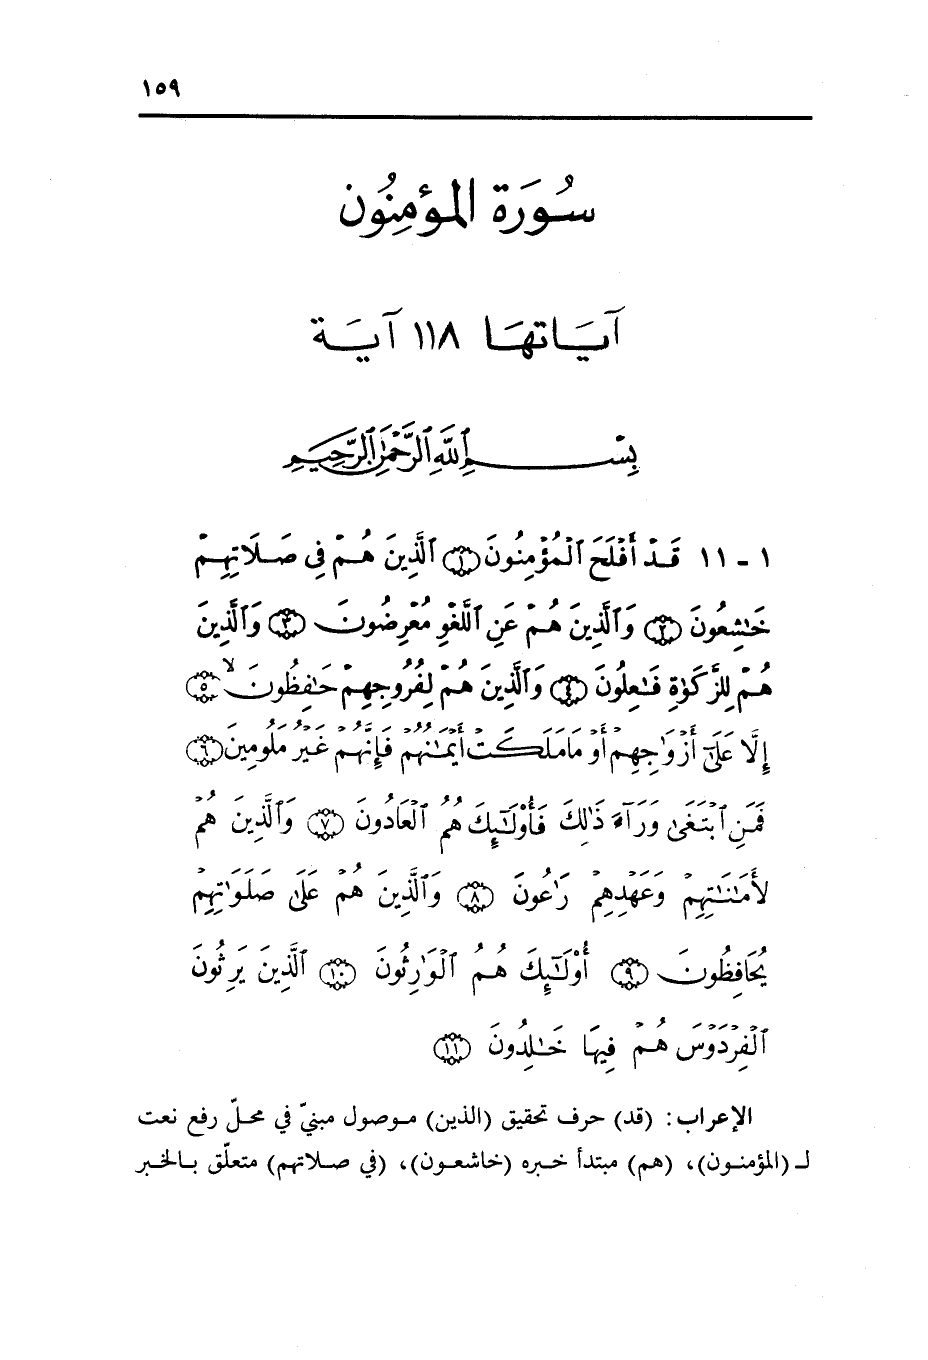 ١٥٩
سُورَة المؤمِنُون
آيَاتهَا ١١٨ آيَة
بِسْمِ ٱللَّهِ ٱلرَّحْمَٰنِ ٱلرَّحِيمِ
١ - ١١ قَدْ أَفْلَحَ ٱلْمُؤْمِنُونَ ﴿١﴾ ٱلَّذِينَ هُمْ فِى صَلَاتِهِمْ
خَٰشِعُونَ ﴿٢﴾ وَٱلَّذِينَ هُمْ عَنِ ٱللَّغْوِ مُعْرِضُونَ ﴿٣﴾ وَٱلَّذِينَ
هُمْ لِلزَّكَوٰةِ فَٰعِلُونَ ﴿٤﴾ وَٱلَّذِينَ هُمْ لِفُرُوجِهِمْ حَٰفِظُونَ ۙ ﴿٥﴾
إِلَّا عَلَىٰٓ أَزْوَٰجِهِمْ أَوْ مَا مَلَكَتْ أَيْمَٰنُهُمْ فَإِنَّهُمْ غَيْرُ مَلُومِينَ ﴿٦﴾
فَمَنِ ٱبْتَغَىٰ وَرَآءَ ذَٰلِكَ فَأُوْلَٰٓئِكَ هُمُ ٱلْعَادُونَ ﴿٧﴾ وَٱلَّذِينَ هُمْ
لِأَمَٰنَٰتِهِمْ وَعَهْدِهِمْ رَٰعُونَ ﴿٨﴾ وَٱلَّذِينَ هُمْ عَلَىٰ صَلَوَٰتِهِمْ
يُحَافِظُونَ ﴿٩﴾ أُوْلَٰٓئِكَ هُمُ ٱلْوَٰرِثُونَ ﴿١٠﴾ ٱلَّذِينَ يَرِثُونَ
ٱلْفِرْدَوْسَ هُمْ فِيهَا خَٰلِدُونَ ﴿١١﴾
الإعراب: (قد) حرف تحقيق (الذين) موصول مبنيّ في محلّ رفع نعت
لـ (المؤمنون)، (هم) مبتدأ خبره (خاشعون)، (في صلاتهم) متعلّق بالخبر